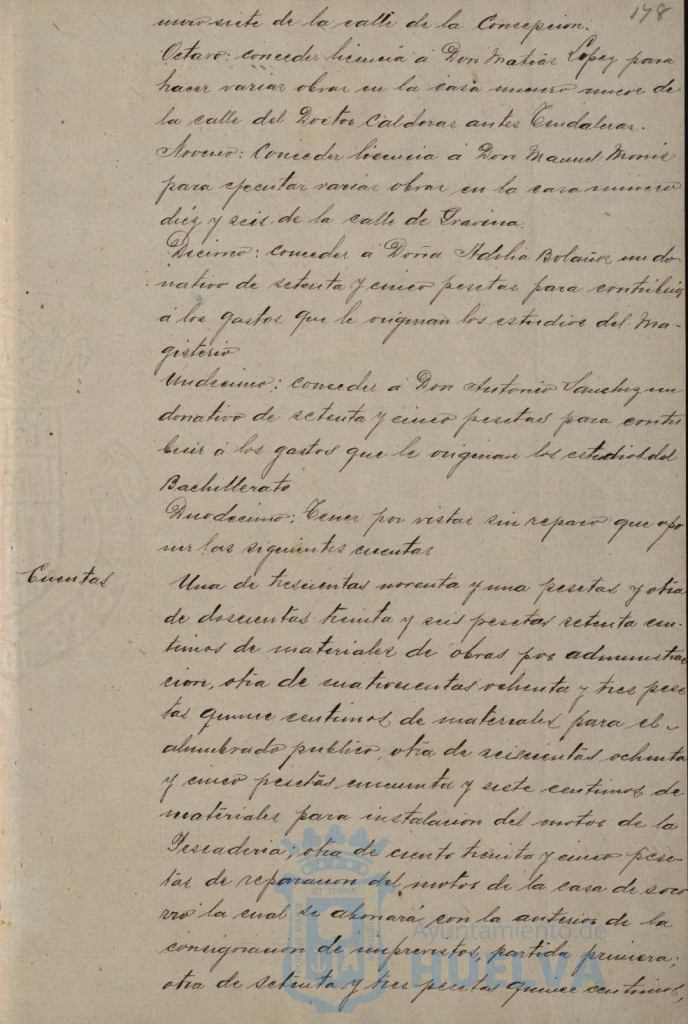 178
mero siete de la calle de la Concepcion.
Octavo: conceder licencia á Don Matias Lopez para
hacer varias obras en la casa numero nueve de
la calle del Doctor Calderas antes Tendaleras.
Noveno: Conceder licencia á Don Manuel Monis
para ejecutar varias obras en la casa numero
diéz y seis de la calle de Gravina.
Decimo: conceder á Doña Adolia Bolaños un do-
nativo de setenta y cinco pesetas para contribuir
á los gastos que le originan los estudios del Ma-
gisterio
Undecimo: conceder á Don Antonio Sanchez un
donativo de setenta y cinco pesetas para contri
buir á los gastos que le originan los estudios del
Bachillerato
Duodecimo: Tener por vistas sin reparo que opo
ner las siguientes cuentas
Cuentas
Una de trescientas noventa y una pesetas y otra
de doscientas treinta y seis pesetas setenta cen-
timos de materiales de obras por administra
cion, otra de cuatrocientas ochenta y tres pese
tas quince centimos de materiales para el
alumbrado publico, otra de seiscientas ochenta
y cinco pesetas cincuenta y siete centimos de
materiales para instalacion del motor de la
Pescaderia, otra de ciento treinta y cinco pese-
tas de reparacion del motor de la casa de soco
rro la cual se abonará con la anterior de la
consignacion de imprevistos, partida primera;
otra de setenta y tres pesetas quince centimos,
Ayuntamiento de
HUELVA